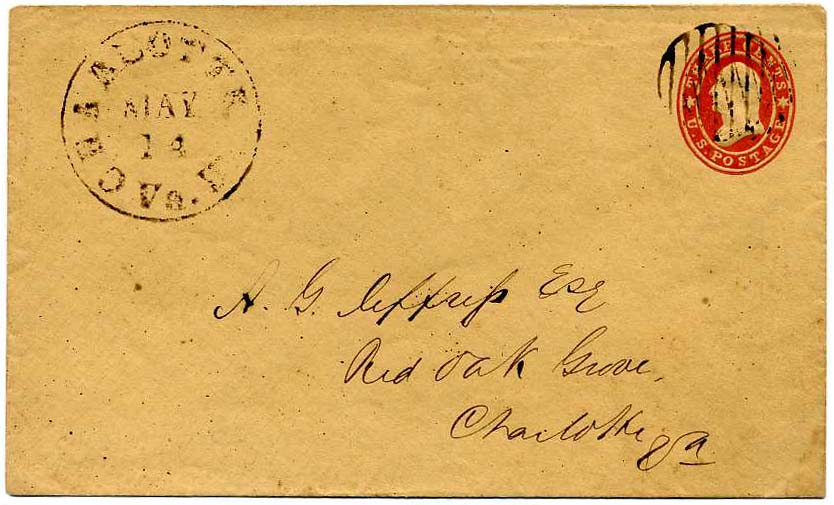 MAY
14
Va.
THREE CENTS
U.S. POSTAGE
A. G. Jeffress Esq
Red Oak Grove,
Charlotte Va